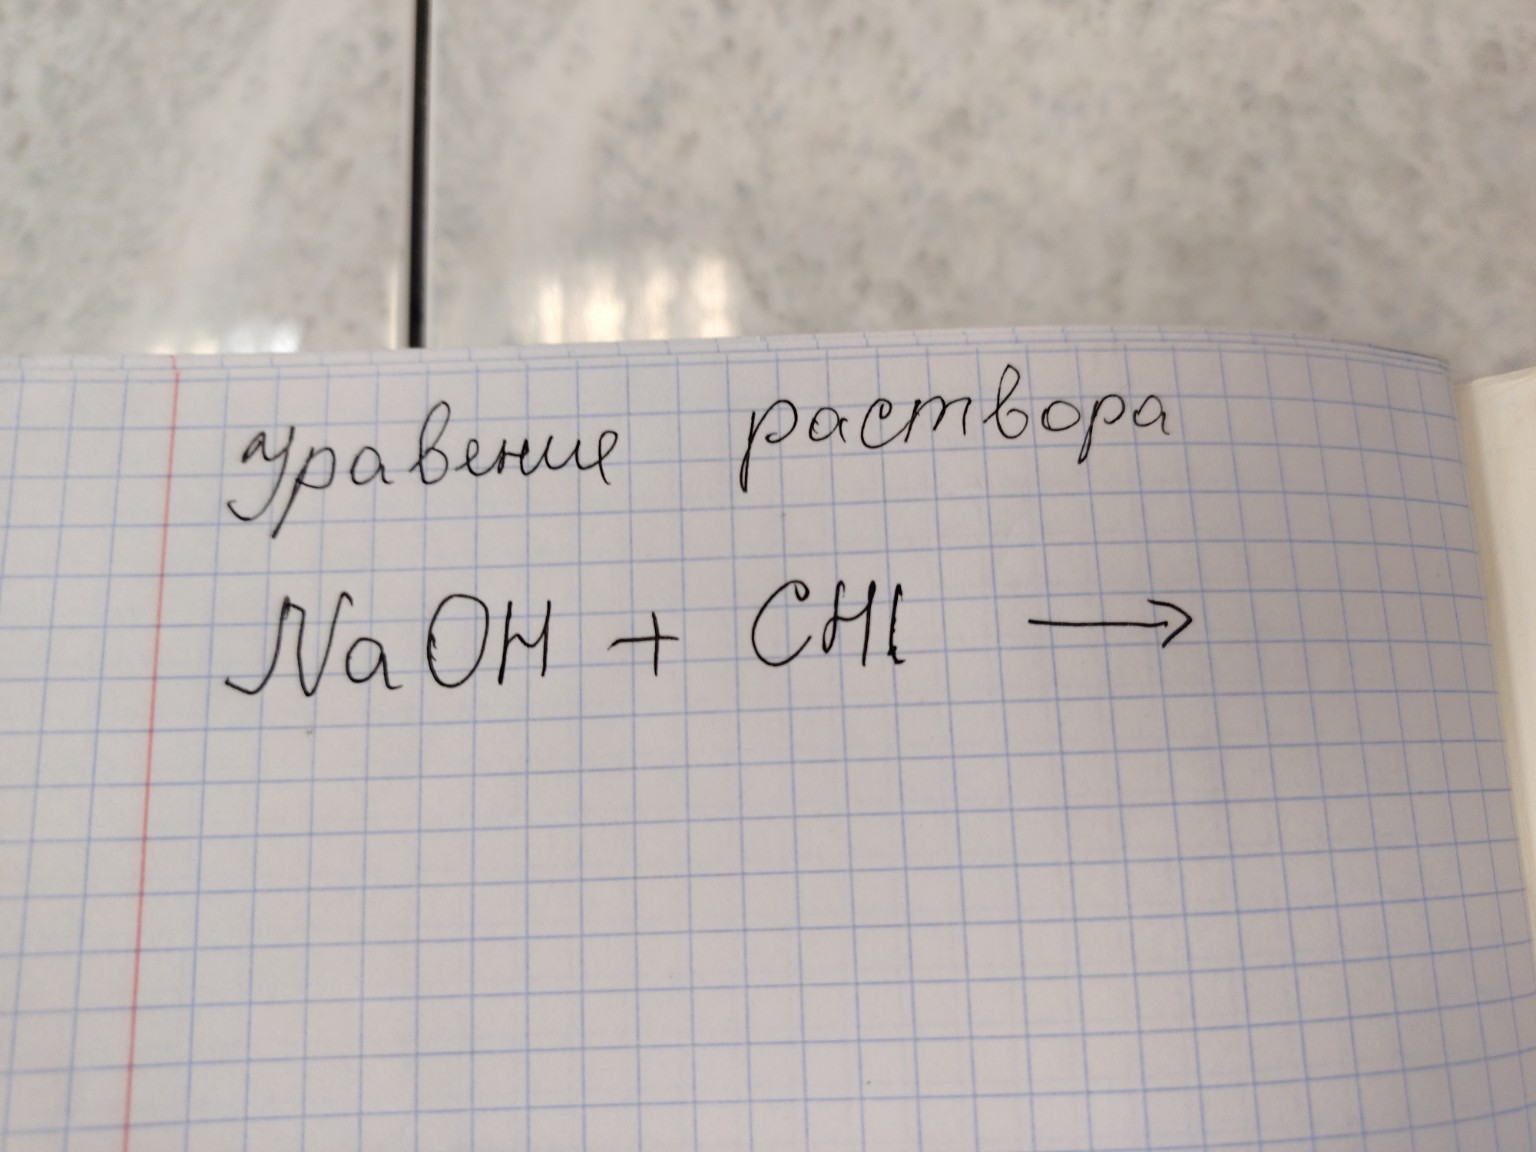 уравение раствора
NaOH + CHl →